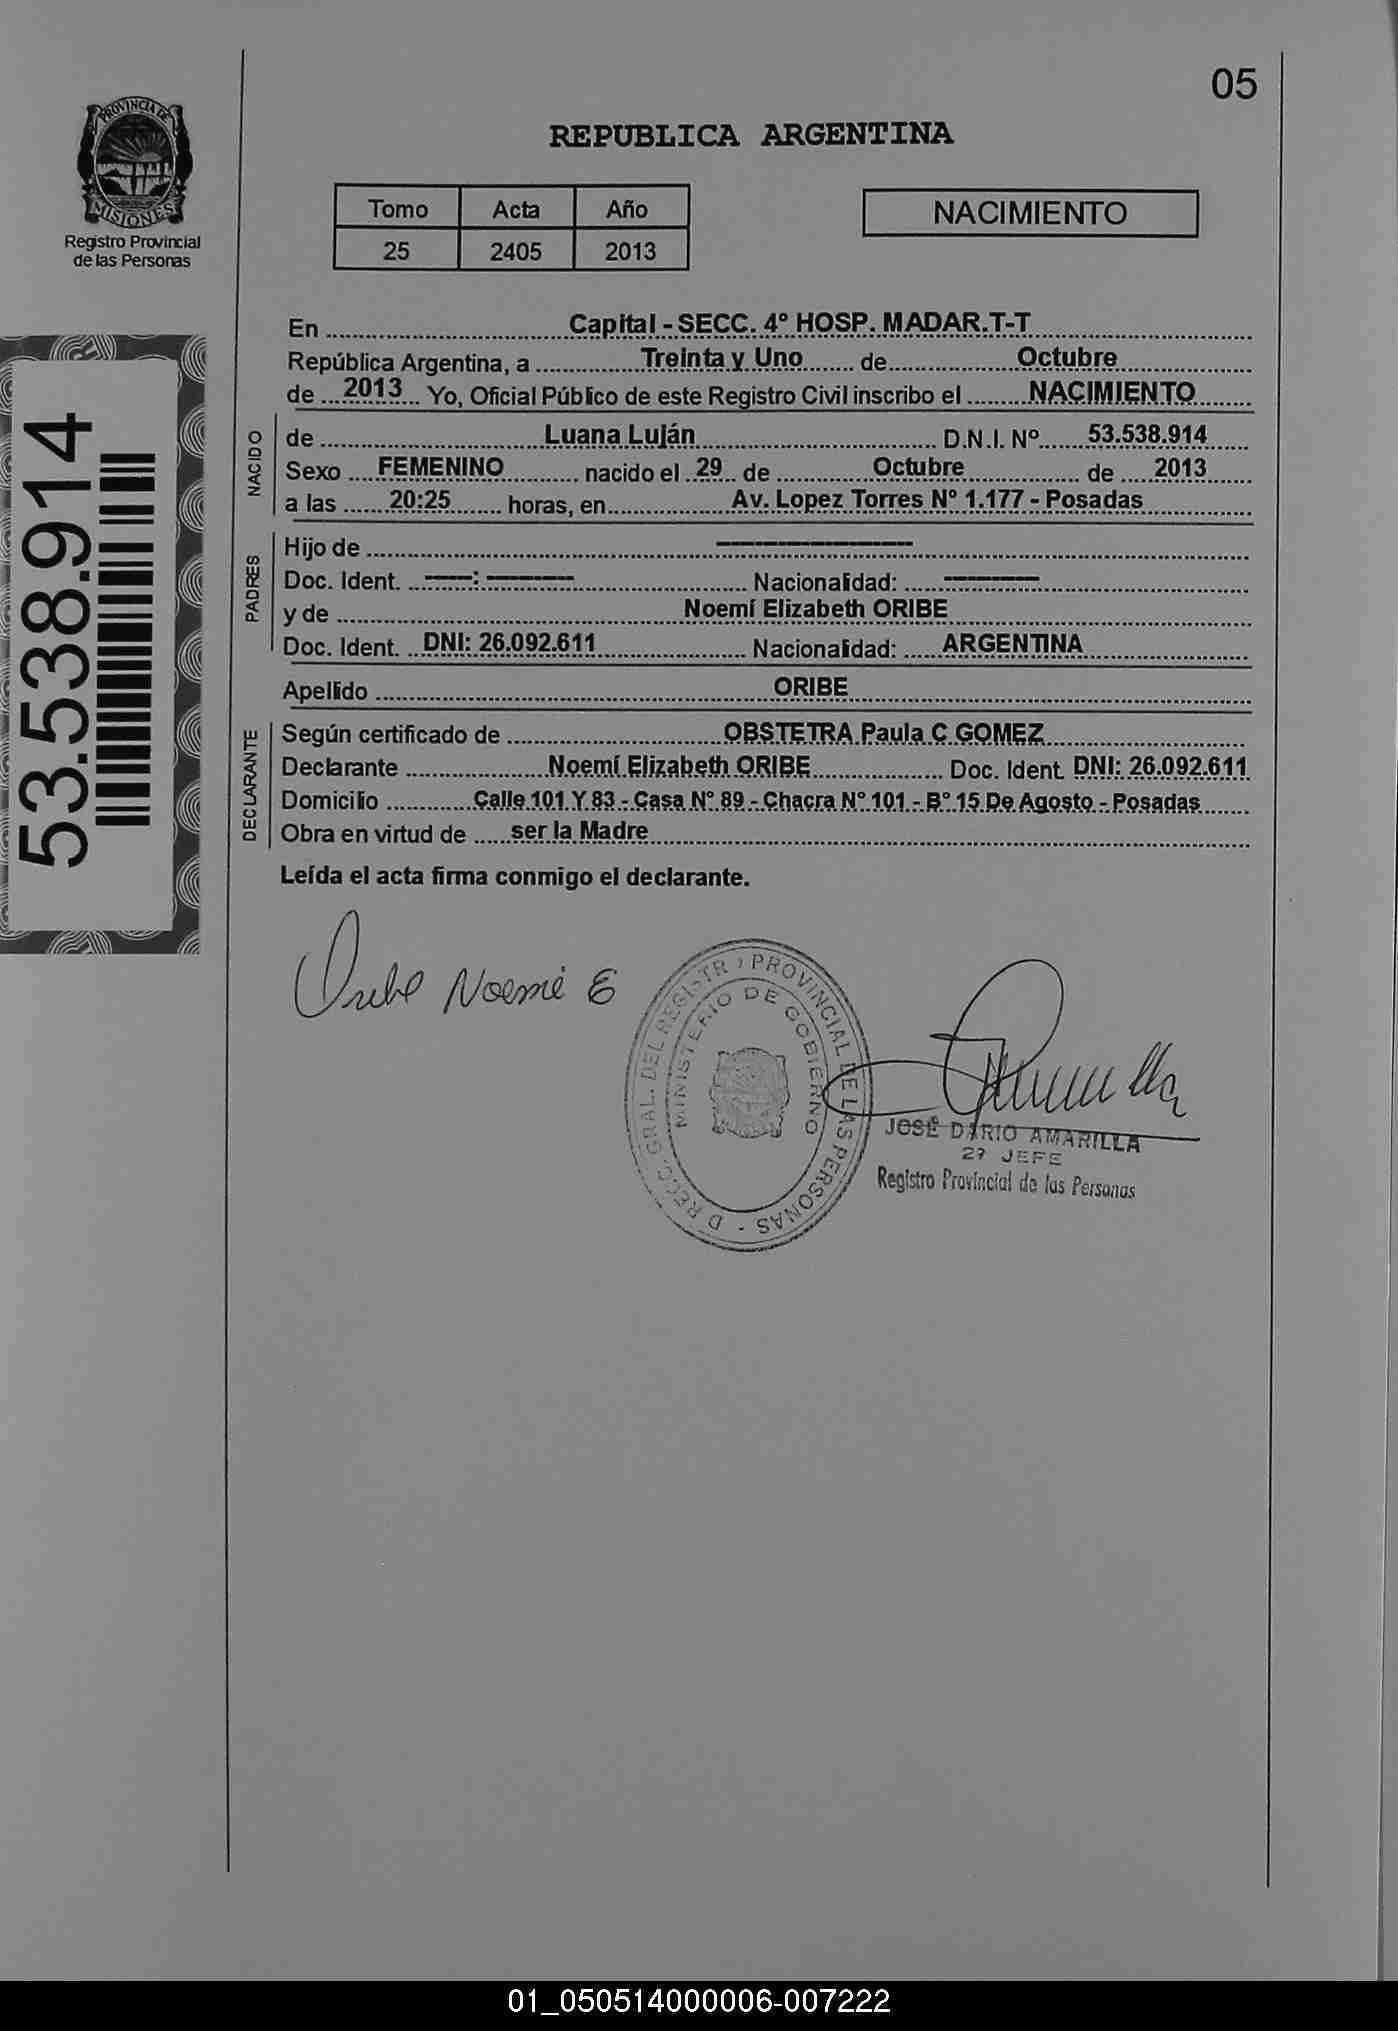 05
PROVINCIA DE
MISIONES
Registro Provincial
de las Personas
REPUBLICA ARGENTINA
Tomo Acta Año
25 2405 2013
NACIMIENTO
53.538.914
En Capital - SECC. 4° HOSP. MADAR.T-T
República Argentina, a Treinta y Uno de Octubre
de 2013 Yo, Oficial Público de este Registro Civil inscribo el NACIMIENTO
NACIDO
de Luana Luján D.N.I. Nº 53.538.914
Sexo FEMENINO nacido el 29 de Octubre de 2013
a las 20:25 horas, en Av. Lopez Torres Nº 1.177 - Posadas
PADRES
Hijo de --------------------
Doc. Ident. -----: --------- Nacionalidad: ----------
y de Noemí Elizabeth ORIBE
Doc. Ident. DNI: 26.092.611 Nacionalidad: ARGENTINA
Apellido ORIBE
DECLARANTE
Según certificado de OBSTETRA Paula C GOMEZ
Declarante Noemí Elizabeth ORIBE Doc. Ident. DNI: 26.092.611
Domicilio Calle 101 Y 83 - Casa N° 89 - Chacra N° 101 - B° 15 De Agosto - Posadas
Obra en virtud de ser la Madre
Leída el acta firma conmigo el declarante.
Oribe Noemi E
GRAL. DEL REGISTRO PROVINCIAL DE LAS PERSONAS
MINISTERIO DE GOBIERNO
JOSÉ DARIO AMARILLA
2º JEFE
Registro Provincial de las Personas
01_050514000006-007222